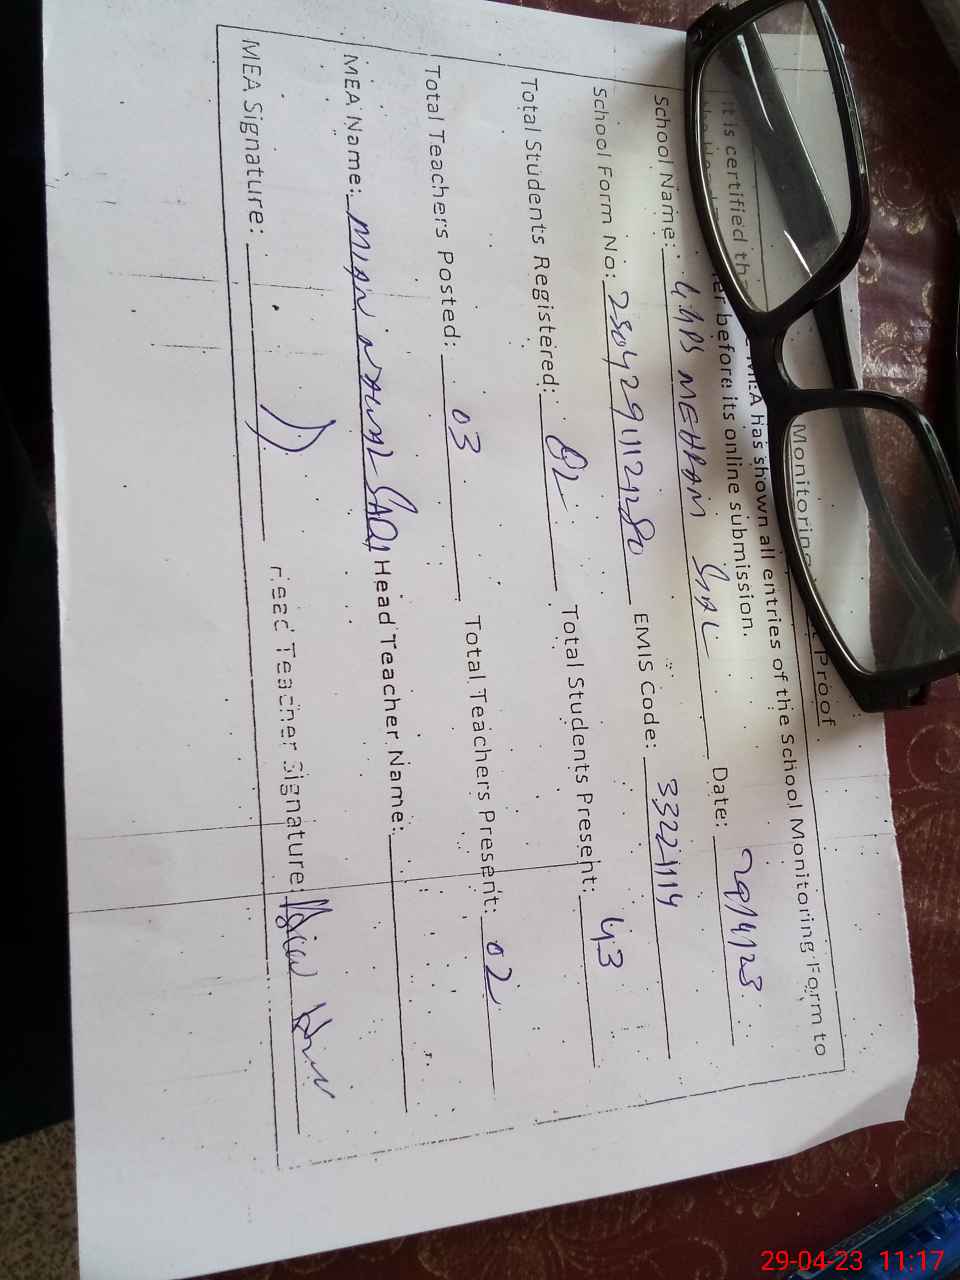 Monitoring Proof
It is certified MEA has shown all entries of the School Monitoring Form to
before its online submission.
School Name: GGPS MEHRAM SIAL Date: 29/4/23
School Form No: EMIS Code: 33221114
Total Students Registered: 82 Total Students Present: 43
Total Teachers Posted: 03 Total Teachers Present: 02
MEA Name: MIAN Head Teacher Name:
MEA Signature: Head Teacher Signature:
29-04-23 11:17